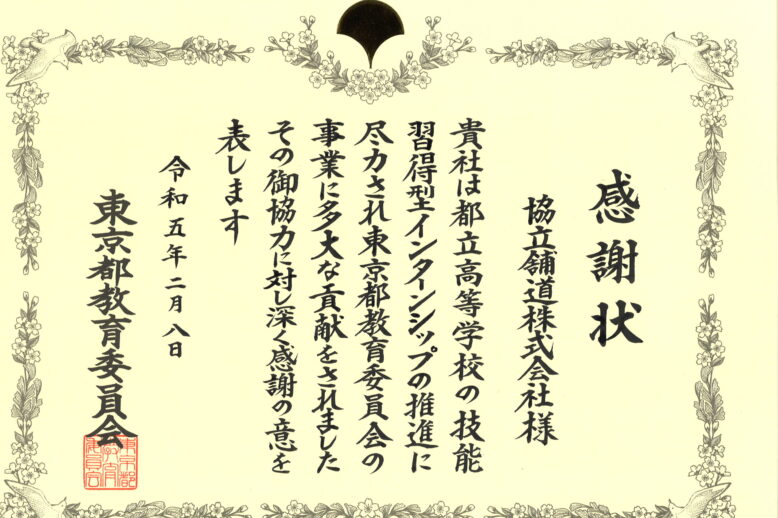 感謝状
協立舗道株式会社様
貴社は都立高等学校の技能
習得型インターンシップの推進に
尽力され東京都教育委員会の
事業に多大な貢献をされました
その御協力に対し深く感謝の意を
表します
令和五年二月八日
東京都教育委員会
東京都
教育
委員会